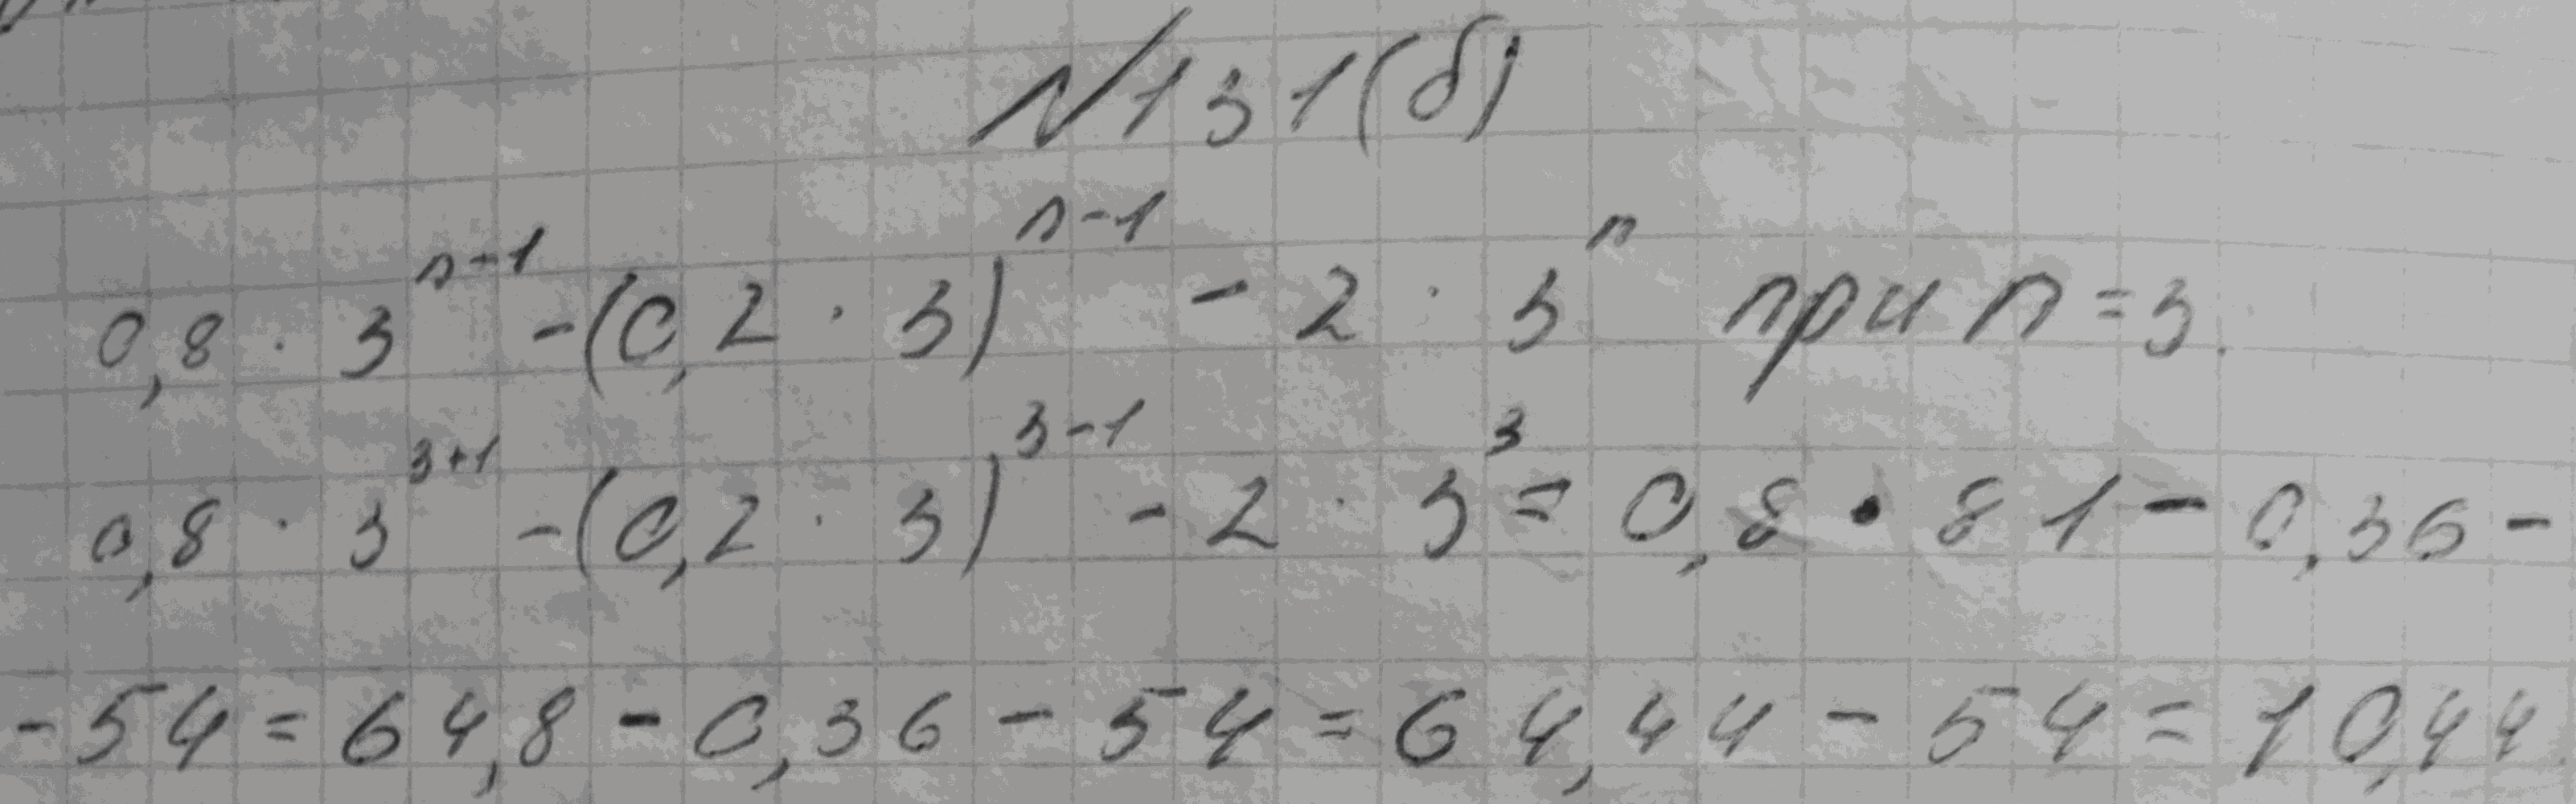 №131(б)
0,8 · 3ⁿ⁺¹ - (0,2 · 3)ⁿ⁻¹ - 2 · 3ⁿ при n = 3.
0,8 · 3³⁺¹ - (0,2 · 3)³⁻¹ - 2 · 3³ = 0,8 · 81 - 0,36 -
- 54 = 64,8 - 0,36 - 54 = 64,44 - 54 = 10,44